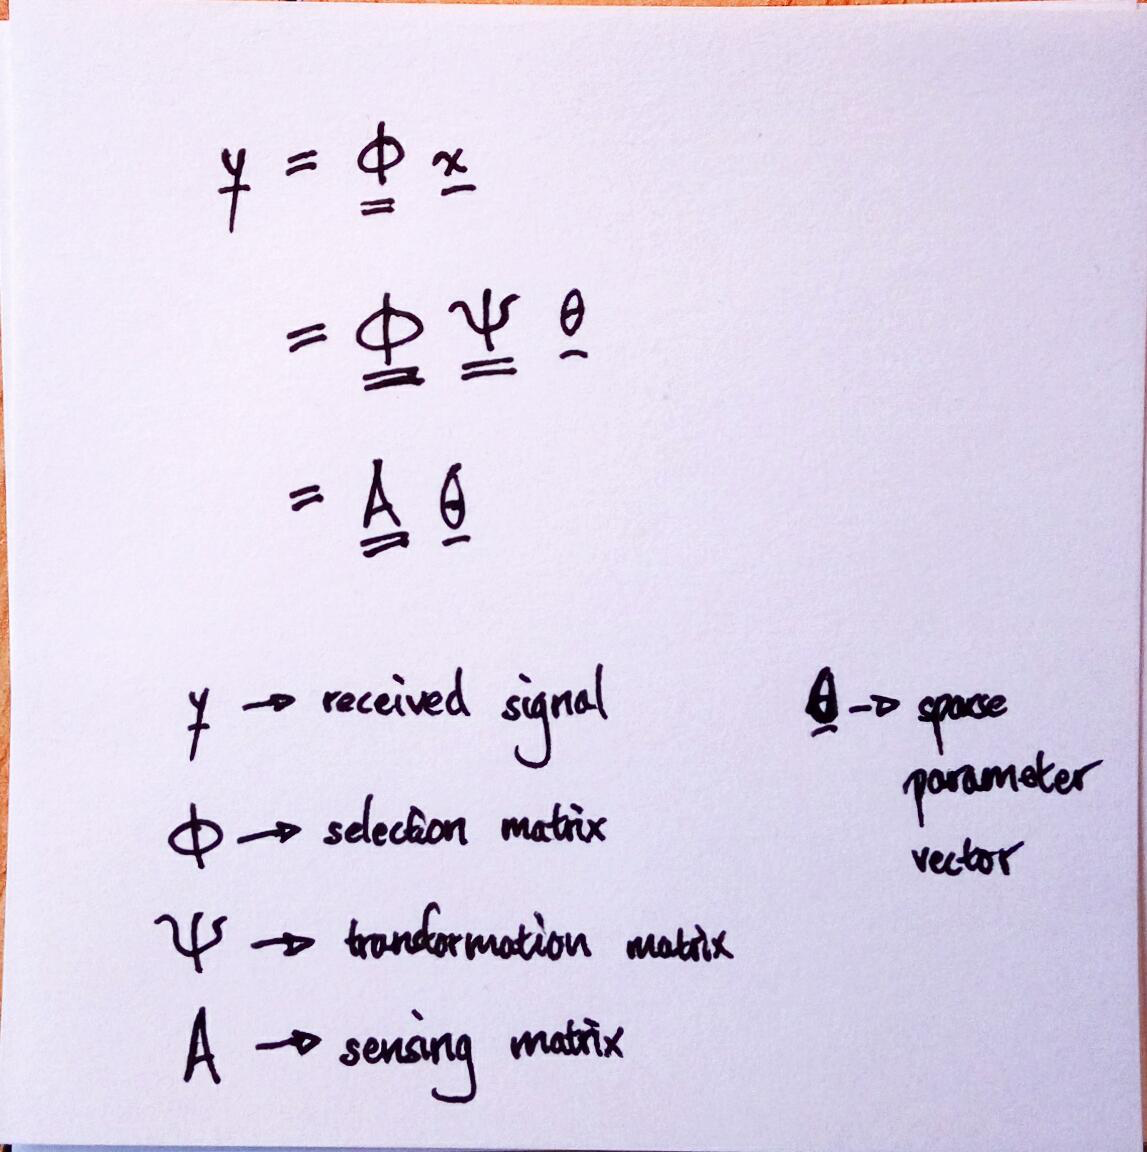 y = Φ x
= Φ Ψ θ
= A θ
y → received signal
Φ → selection matrix
Ψ → tranformation matrix
A → sensing matrix
θ → sparse
parameter
vector